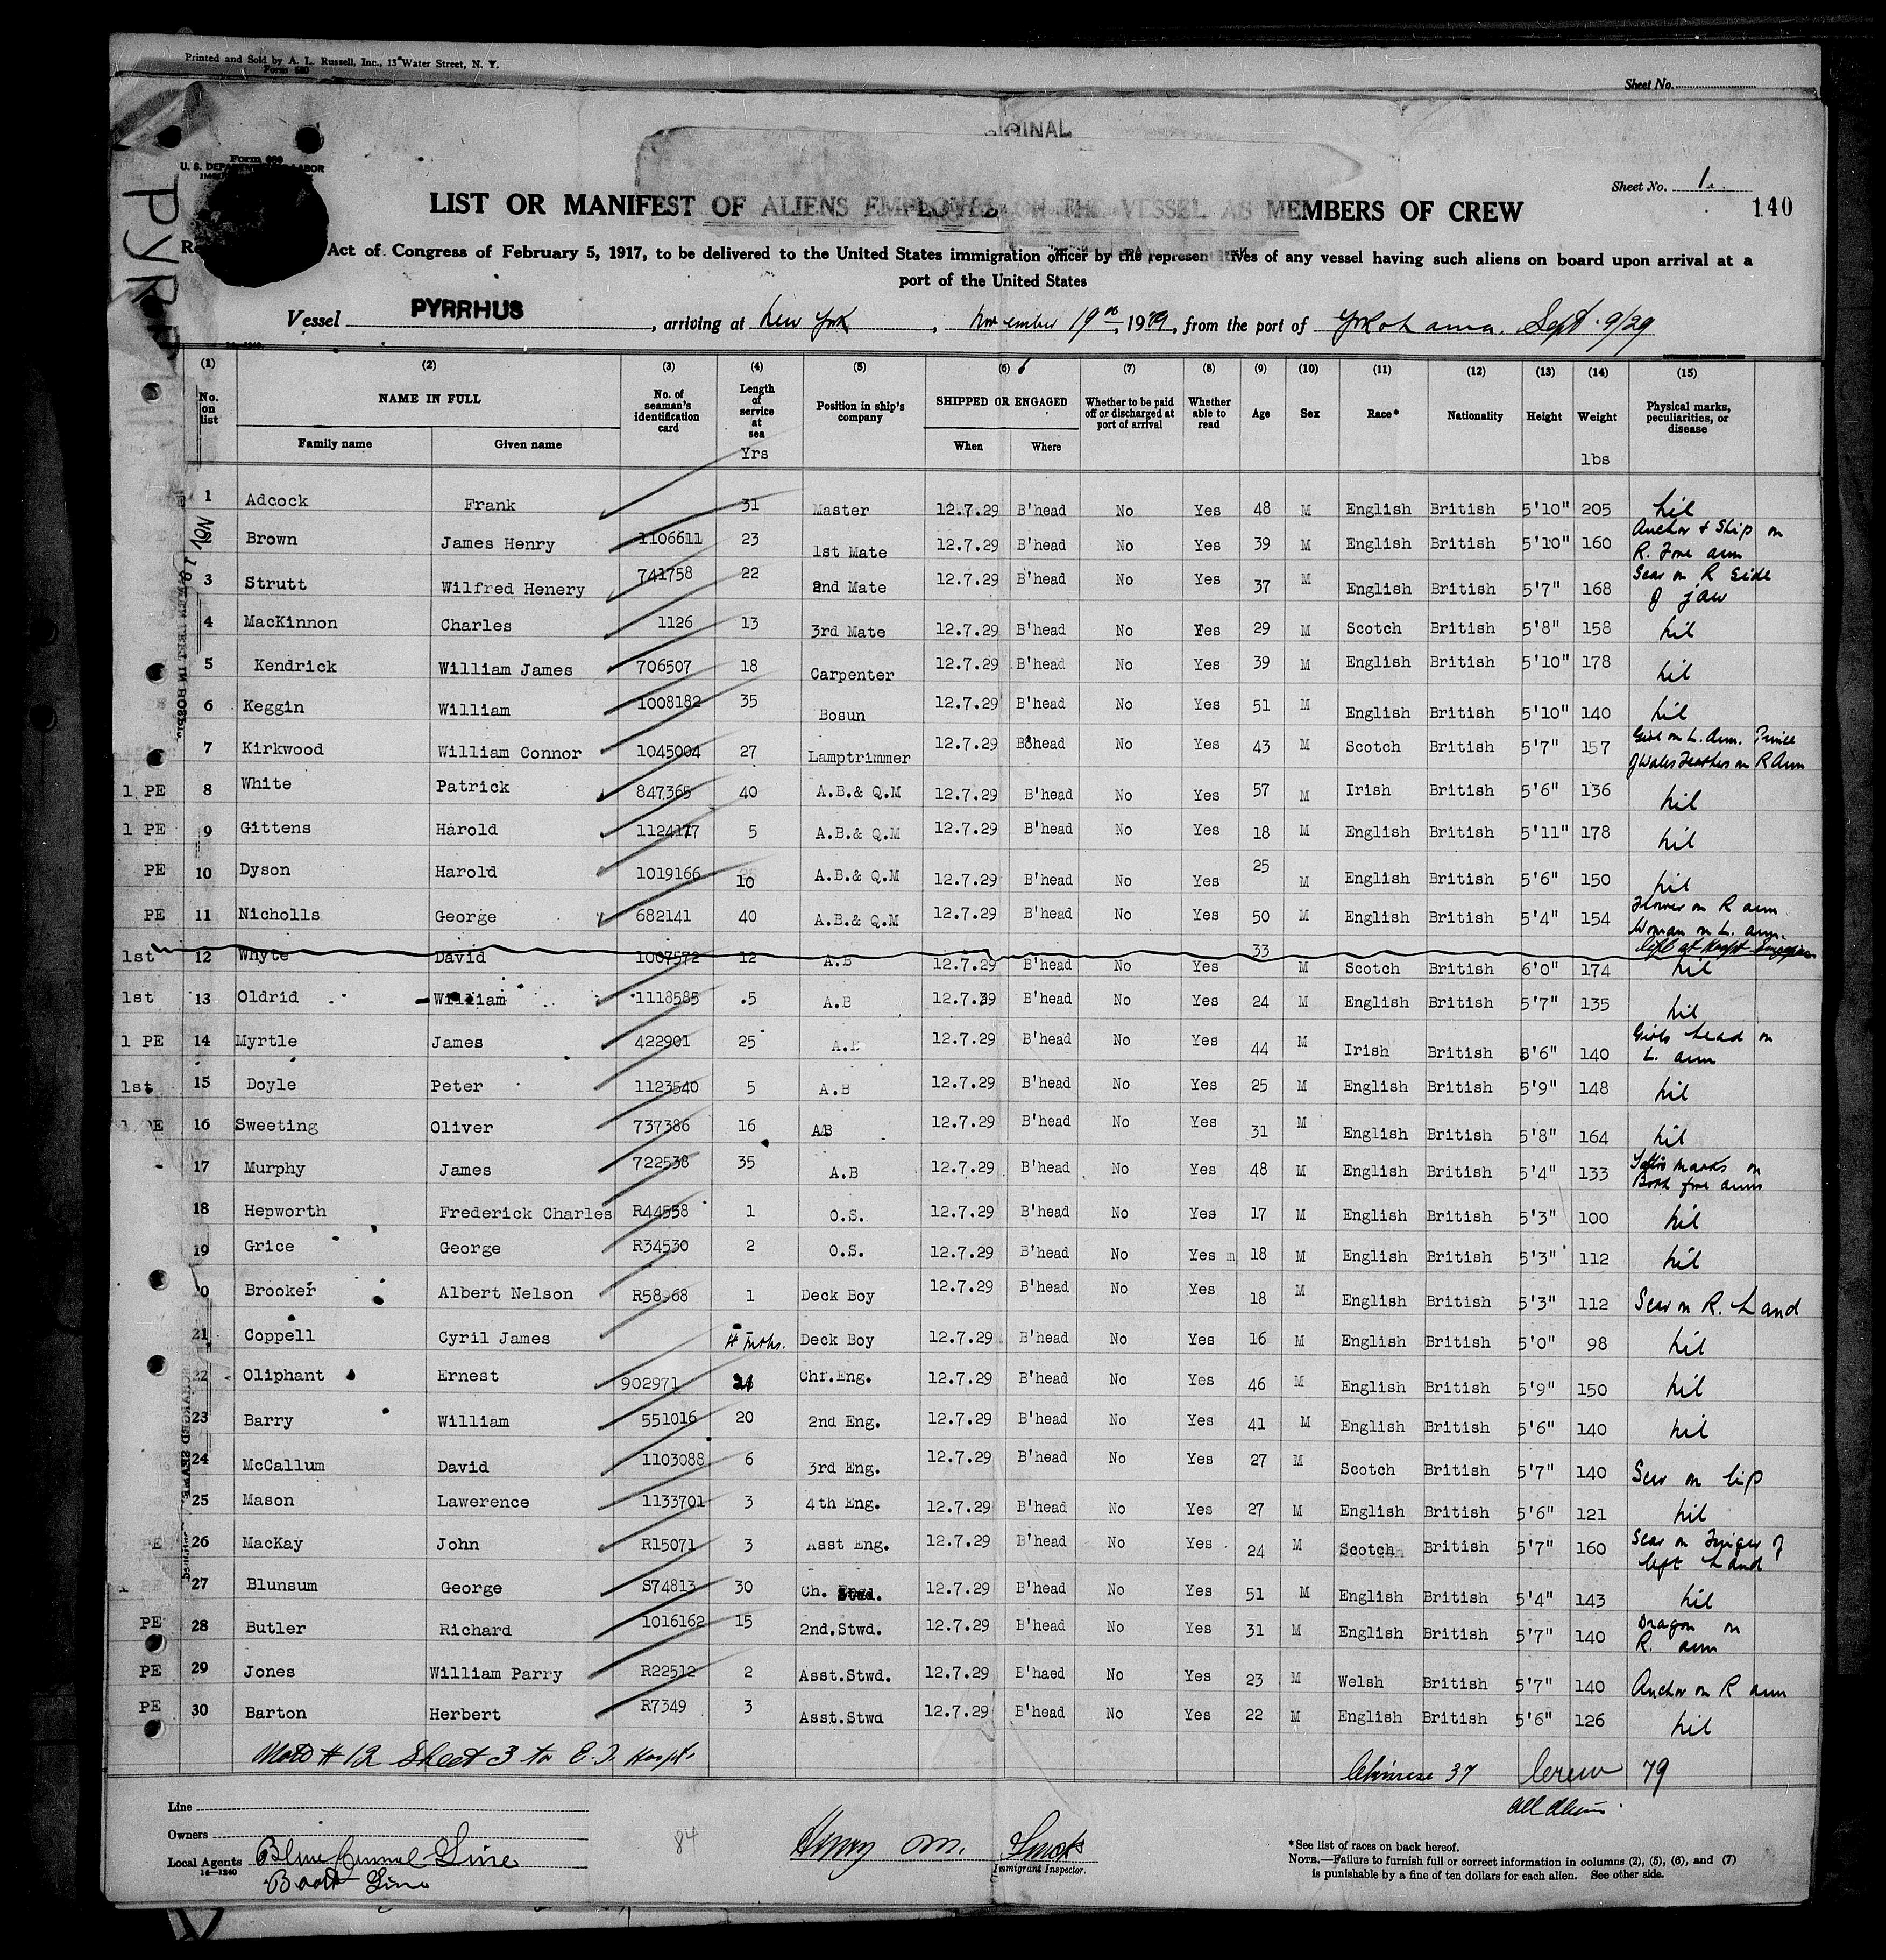 Printed and Sold by A. L. Russell, Inc., 13 Water Street, N. Y.
Form 680
Sheet No.
ORIGINAL
Form 680
U. S. DEPARTMENT OF LABOR
Sheet No. 1.
140
PYRR
LIST OR MANIFEST OF ALIENS EMPLOYED ON THE VESSEL AS MEMBERS OF CREW
Act of Congress of February 5, 1917, to be delivered to the United States immigration officer by the representatives of any vessel having such aliens on board upon arrival at a
port of the United States
Vessel PYRRHUS, arriving at New York, November 19th, 1929, from the port of Yokohama. Sept. 9/29
14-1240
(1) (2) (3) (4) (5) (6) (7) (8) (9) (10) (11) (12) (13) (14) (15)
No. on list NAME IN FULL Family name Given name No. of seaman's identification card Length of service at sea Position in ship's company SHIPPED OR ENGAGED When Where Whether to be paid off or discharged at port of arrival Whether able to read Age Sex Race* Nationality Height Weight Physical marks, peculiarities, or disease
Yrs lbs
1 Adcock Frank 31 Master 12.7.29 B'head No Yes 48 M English British 5'10" 205 Nil
2 Brown James Henry 1106611 23 1st Mate 12.7.29 B'head No Yes 39 M English British 5'10" 160 Anchor & Ship on R. Fore arm
3 Strutt Wilfred Henery 741758 22 2nd Mate 12.7.29 B'head No Yes 37 M English British 5'7" 168 Scar on R side of jaw
4 MacKinnon Charles 1126 13 3rd Mate 12.7.29 B'head No Yes 29 M Scotch British 5'8" 158 Nil
5 Kendrick William James 706507 18 Carpenter 12.7.29 B'head No Yes 39 M English British 5'10" 178 Nil
6 Keggin William 1008182 35 Bosun 12.7.29 B'head No Yes 51 M English British 5'10" 140 Nil
7 Kirkwood William Connor 1045004 27 Lamptrimmer 12.7.29 B8head No Yes 43 M Scotch British 5'7" 157 Girl on L. Arm. Prince of Wales Feathers on R Arm
1 PE 8 White Patrick 847365 40 A.B.& Q.M 12.7.29 B'head No Yes 57 M Irish British 5'6" 136 Nil
1 PE 9 Gittens Harold 1124177 5 A.B.& Q.M 12.7.29 B'head No Yes 18 M English British 5'11" 178 Nil
PE 10 Dyson Harold 1019166 10 A.B.& Q.M 12.7.29 B'head No Yes 25 M English British 5'6" 150 Nil
PE 11 Nicholls George 682141 40 A.B.& Q.M 12.7.29 B'head No Yes 50 M English British 5'4" 154 Flower on R arm Woman on L. arm.
1st 12 Whyte David 1007572 12 A.B 12.7.29 B'head No Yes 33 M Scotch British 6'0" 174 left at Hospt Nil
1st 13 Oldrid William 1118585 5 A.B 12.7.39 B'head No Yes 24 M English British 5'7" 135 Nil
1 PE 14 Myrtle James 422901 25 A.B 12.7.29 B'head No Yes 44 M Irish British 5'6" 140 Girls head on L. arm
1st 15 Doyle Peter 1123540 5 A.B 12.7.29 B'head No Yes 25 M English British 5'9" 148 Nil
1 PE 16 Sweeting Oliver 737386 16 AB 12.7.29 B'head No Yes 31 M English British 5'8" 164 Nil
17 Murphy James 722538 35 A.B 12.7.29 B'head No Yes 48 M English British 5'4" 133 Tattoo marks on Both fore arms
18 Hepworth Frederick Charles R44558 1 O.S. 12.7.29 B'head No Yes 17 M English British 5'3" 100 Nil
19 Grice George R34530 2 O.S. 12.7.29 B'head No Yes m 18 M English British 5'3" 112 Nil
20 Brooker Albert Nelson R58968 1 Deck Boy 12.7.29 B'head No Yes 18 M English British 5'3" 112 Scar on R. hand
21 Coppell Cyril James 4 mths. Deck Boy 12.7.29 B'head No Yes 16 M English British 5'0" 98 Nil
22 Oliphant Ernest 902971 Chf.Eng. 12.7.29 B'head No Yes 46 M English British 5'9" 150 Nil
23 Barry William 551016 20 2nd Eng. 12.7.29 B'head No Yes 41 M English British 5'6" 140 Nil
24 McCallum David 1103088 6 3rd Eng. 12.7.29 B'head No Yes 27 M Scotch British 5'7" 140 Scar on lip
25 Mason Lawerence 1133701 3 4th Eng. 12.7.29 B'head No Yes 27 M English British 5'6" 121 Nil
PE 26 MacKay John R15071 3 Asst Eng. 12.7.29 B'head No Yes 24 M Scotch British 5'7" 160 Scar on Finger of left hand
1 PE 27 Blunsum George S74813 30 Ch. Stwd. 12.7.29 B'head No Yes 51 M English British 5'4" 143 Nil
PE 28 Butler Richard 1016162 15 2nd.Stwd. 12.7.29 B'head No Yes 31 M English British 5'7" 140 Dragon on R. arm
PE 29 Jones William Parry R22512 2 Asst.Stwd. 12.7.29 B'haed No Yes 23 M Welsh British 5'7" 140 Anchor on R arm
PE 30 Barton Herbert R7349 3 Asst.Stwd 12.7.29 B'head No Yes 22 M English British 5'6" 126 Nil
# 12 Sheet 3 to E. I. Hospt. Chinese 37 Crew 79
All Aliens
Line
Owners
Local Agents Blue Funnel Line
14-1240
Booth Line
84
Henry M.
Immigrant Inspector.
*See list of races on back hereof.
NOTE.—Failure to furnish full or correct information in columns (2), (5), (6), and (7)
is punishable by a fine of ten dollars for each alien. See other side.